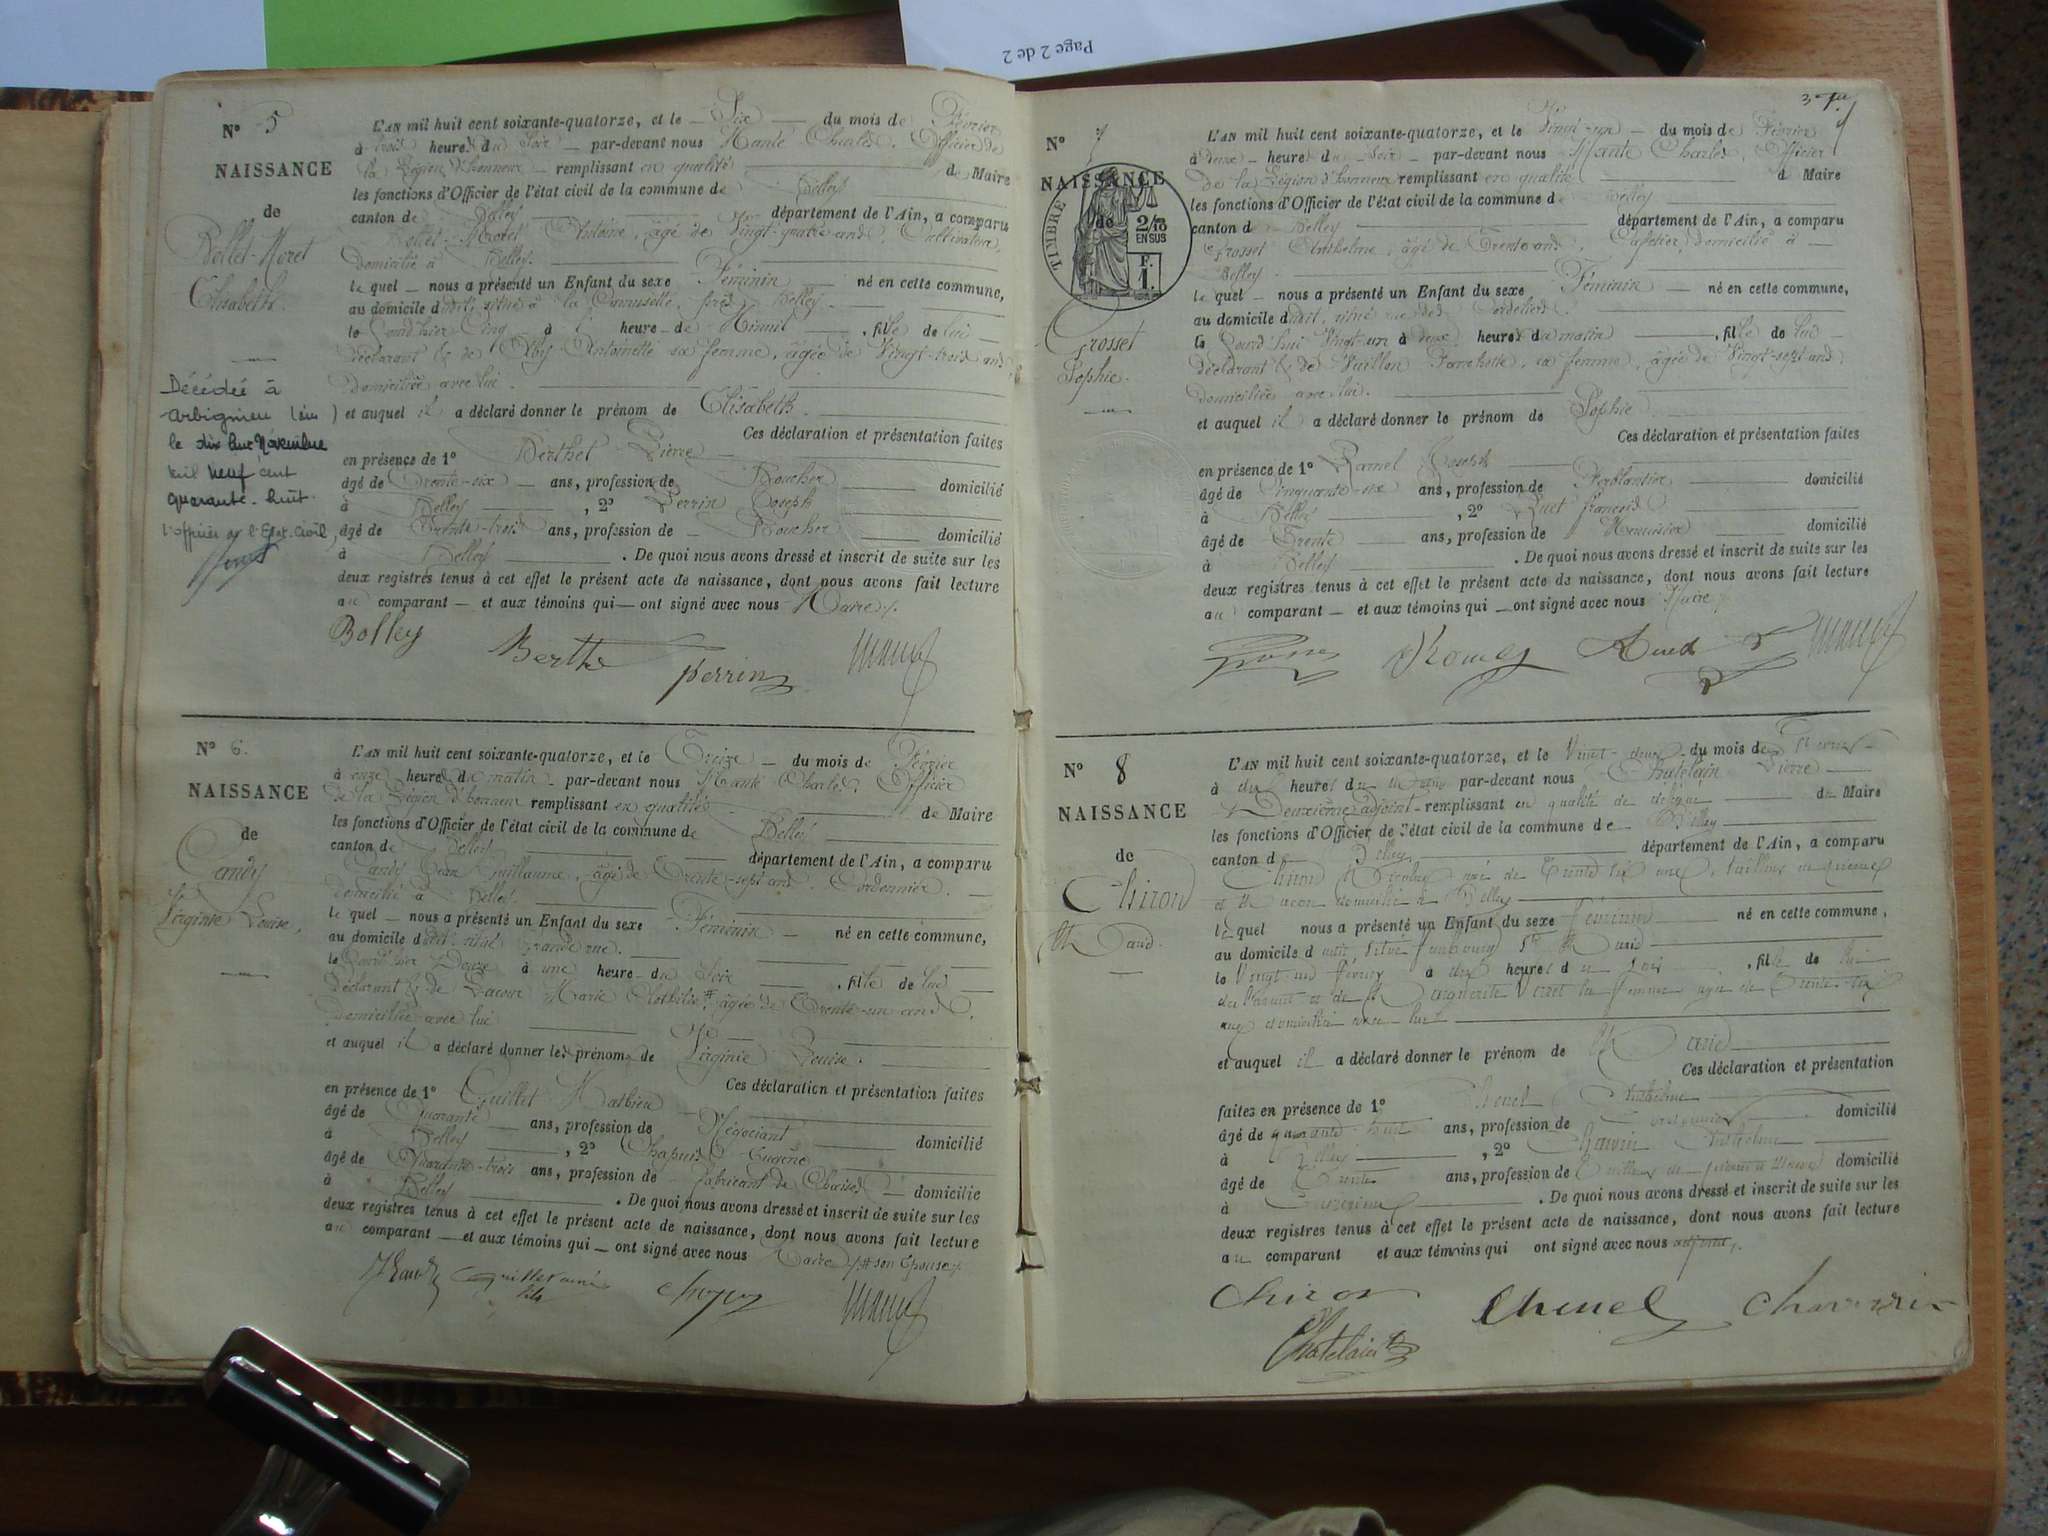 Page 2 de 2
N° 5
NAISSANCE
de
Bollet-Moret
Elisabeth.
L'AN mil huit cent soixante-quatorze, et le Six du mois de Février
à trois heures du Soir par-devant nous Charles, Officier de
la Légion d'honneur remplissant en qualité de Maire
les fonctions d'Officier de l'état civil de la commune de Belley
canton de Belley département de l'Ain, a comparu
Antoine, âgé de Vingt-quatre ans, Cultivateur,
domicilié à Belley.
le quel nous a présenté un Enfant du sexe Féminin né en cette commune,
au domicile dudit, situé à la près Belley
le jourd'hier Cinq à heure de Minuit, fille de lui
déclarant & de Antoinette sa femme, âgée de Vingt-trois ans
domiciliée avec lui.
et auquel il a déclaré donner le prénom de Elisabeth.
Ces déclaration et présentation faites
en présence de 1° Berthet Pierre
âgé de Trente-six ans, profession de Boucher domicilié
à Belley, 2° Perrin Joseph
âgé de Trente-trois ans, profession de Boucher domicilié
à Belley. De quoi nous avons dressé et inscrit de suite sur les
deux registres tenus à cet effet le présent acte de naissance, dont nous avons fait lecture
au comparant et aux témoins qui ont signé avec nous Maire.
Décédée à
Arbignieu (Ain)
le dix huit Novembre
mil neuf cent
quarante-huit.
l'officier de l'Etat-Civil,
Bolley Perrin
N° 6.
NAISSANCE
de
Candy
Virginie Louise,
L'AN mil huit cent soixante-quatorze, et le Treize du mois de Février
à onze heures du matin par-devant nous Charles, Officier
de la Légion d'honneur remplissant en qualité de Maire
les fonctions d'Officier de l'état civil de la commune de Belley
canton de Belley département de l'Ain, a comparu
Candy Jean Guillaume, âgé de Trente-sept ans, Cordonnier.
domicilié à Belley.
le quel nous a présenté un Enfant du sexe Féminin né en cette commune,
au domicile dudit, situé Grande rue.
le jourd'hier Douze à une heure du Soir, fille de lui
déclarant & de Lacour Marie Clothilde # âgée de Trente-un ans,
domiciliée avec lui
et auquel il a déclaré donner les prénoms de Virginie Louise.
Ces déclaration et présentation faites
en présence de 1° Guillet Mathieu
âgé de Quarante ans, profession de Négociant domicilié
à Belley, 2° Chapuis Eugène
âgé de Quarante-trois ans, profession de fabricant de Chaises domicilié
à Belley. De quoi nous avons dressé et inscrit de suite sur les
deux registres tenus à cet effet le présent acte de naissance, dont nous avons fait lecture
au comparant et aux témoins qui ont signé avec nous Maire /# son épouse/.
N° 7
NAISSANCE
de
TIMBRE
2/10
EN SUS
F.
1.
Grosset
Sophie.
L'AN mil huit cent soixante-quatorze, et le Vingt-un du mois de Février
à deux heures du Soir par-devant nous Charles, Officier
de la Légion d'honneur remplissant en qualité d Maire
les fonctions d'Officier de l'état civil de la commune d Belley
canton d Belley département de l'Ain, a comparu
Grosset Anthelme, âgé de Trente ans, Cafetier, domicilié à
Belley.
le quel nous a présenté un Enfant du sexe Féminin né en cette commune,
au domicile dudit, situé rue des Cordeliers.
le jourd'hui Vingt-un à deux heures du matin, fille de lui
déclarant & de Vuillon, sa femme, âgée de Vingt-sept ans,
domiciliée avec lui.
et auquel il a déclaré donner le prénom de Sophie.
Ces déclaration et présentation faites
en présence de 1° Joseph
âgé de Cinquante-six ans, profession de Ferblantier domicilié
à Belley, 2° François
âgé de Trente ans, profession de Menuisier domicilié
à Belley. De quoi nous avons dressé et inscrit de suite sur les
deux registres tenus à cet effet le présent acte de naissance, dont nous avons fait lecture
au comparant et aux témoins qui ont signé avec nous Maire
N° 8
NAISSANCE
de
Chiron
L'AN mil huit cent soixante-quatorze, et le Vingt-deux du mois de Février
à dix heures du matin par-devant nous Chatelain Pierre
Deuxième adjoint remplissant en qualité de délégué du Maire
les fonctions d'Officier de l'état civil de la commune de Belley
canton d Belley département de l'Ain, a comparu
Chiron Nicolas âgé de Trente six ans, tailleur de pierres
et Maçon domicilié à Belley
le quel nous a présenté un Enfant du sexe féminin né en cette commune,
au domicile dudit situé faubourg St
le Vingt un février à dix heures du soir, fille de lui
déclarant et de Marguerite sa femme agée de Trente-six
ans domiciliée avec lui
et auquel il a déclaré donner le prénom de
Ces déclaration et présentation
faites en présence de 1° Anthelme
âgé de quarante huit ans, profession de Cordonnier domicilié
à Belley, 2° Chavrin Anthelme
âgé de Trente ans, profession de domicilié
à. De quoi nous avons dressé et inscrit de suite sur les
deux registres tenus à cet effet le présent acte de naissance, dont nous avons fait lecture
au comparant et aux témoins qui ont signé avec nous adjoint.
Chiron
Chatelain